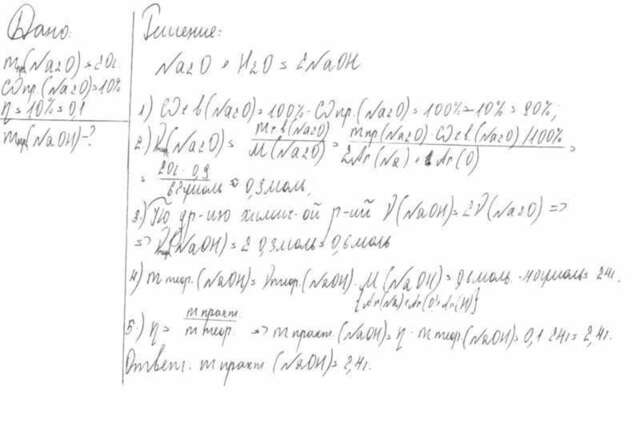 Дано:
mпр(Na2O) = 20г.
ωпр.(Na2O)=10%
η = 10% = 0,1
mпр(NaOH)-?
Решение:
Na2O + H2O = 2NaOH
1) ωв-в(Na2O)=100%-ωпр.(Na2O)=100%-10%=90%;
2) ν(Na2O) = mв-в(Na2O) / M(Na2O) = mпр(Na2O) ωв-в(Na2O)/100% / 2Ar(Na)+1Ar(O) =
= 20г · 0,9 / г/моль = 0,3моль.
3.) По ур-ию химич-ой р-ий ν(NaOH)=2ν(Na2O) =>
=> ν(NaOH)=2 0,3моль=0,6моль
4) m теор.(NaOH)=νтеор.(NaOH)· M(NaOH)=0,6моль ·40г/моль= 24г.
{Ar(Na)+Ar(O)+Ar(H)}
5.) η = m практ. / m теор. => m практ.(NaOH)=η · m теор(NaOH)=0,1·24г= 2,4г.
Ответ: m практ (NaOH)=2,4г.